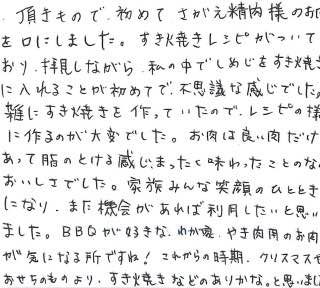 、頂きもので、初めて さがえ精肉様のお
を口にしました。すき焼きレシピがついて
おり、拝見しながら、私の中でしめじをすき焼き
に入れることが初めてで、不思議な感じでした。
雑にすき焼きを作っていたので、レシピの様
に作るのが大変でした。お肉は良い肉だけ
あって脂のとける感じ、まったく味わったことのな
おいしさでした。家族みんな笑顔のひととき
になり、また機会があれば利用したいと思い
ました。BBQが好きな、わが家、やき肉用のお肉
が気になる所ですね！これからの時期、クリスマスや
おせちのものより、すき焼きなどのありかな。と思いまし